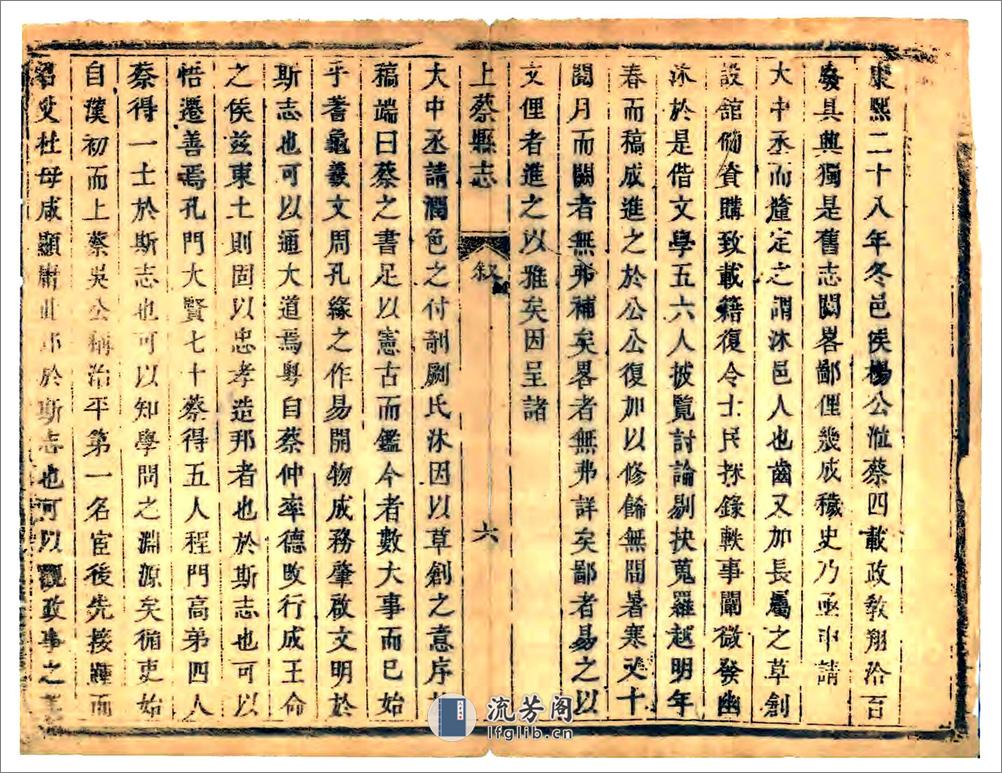 康熙二十八年冬邑侯楊公涖蔡四載政敎翔洽百
廢具興獨是舊志闕畧鄙俚幾成穢史乃亟申請
大中丞而釐定之謂沐邑人也齒又加長屬之草創
設館備資購致載籍復令士民採錄軼事闡微發幽
沐於是偕文學五六人披覽討論剔抉蒐羅越明年
春而稿成進之於公公復加以修餙無間暑寒又十
閱月而闕者無弗補矣畧者無弗詳矣鄙者易之以
文俚者進之以雅矣因呈諸
上蔡縣志
敘
六
大中丞請潤色之付剞劂氏沐因以草創之意序
稿端曰蔡之書足以憲古而鑑今者數大事而已始
乎蓍龜羲文周孔緣之作易開物成務肇啟文明於
斯志也可以通大道焉粤自蔡仲率德攺行成王命
之侯兹東土則固以忠孝造邦者也於斯志也可以
悟遷善焉孔門大賢七十蔡得五人程門高弟四人
蔡得一士於斯志也可以知學問之淵源矣循吏始
自漢初而上蔡吳公稱治平第一名宦後先接踵而
召父杜母咸顯庸此邦於斯志也可以觀政事之
流芳阁
lfglib.cn